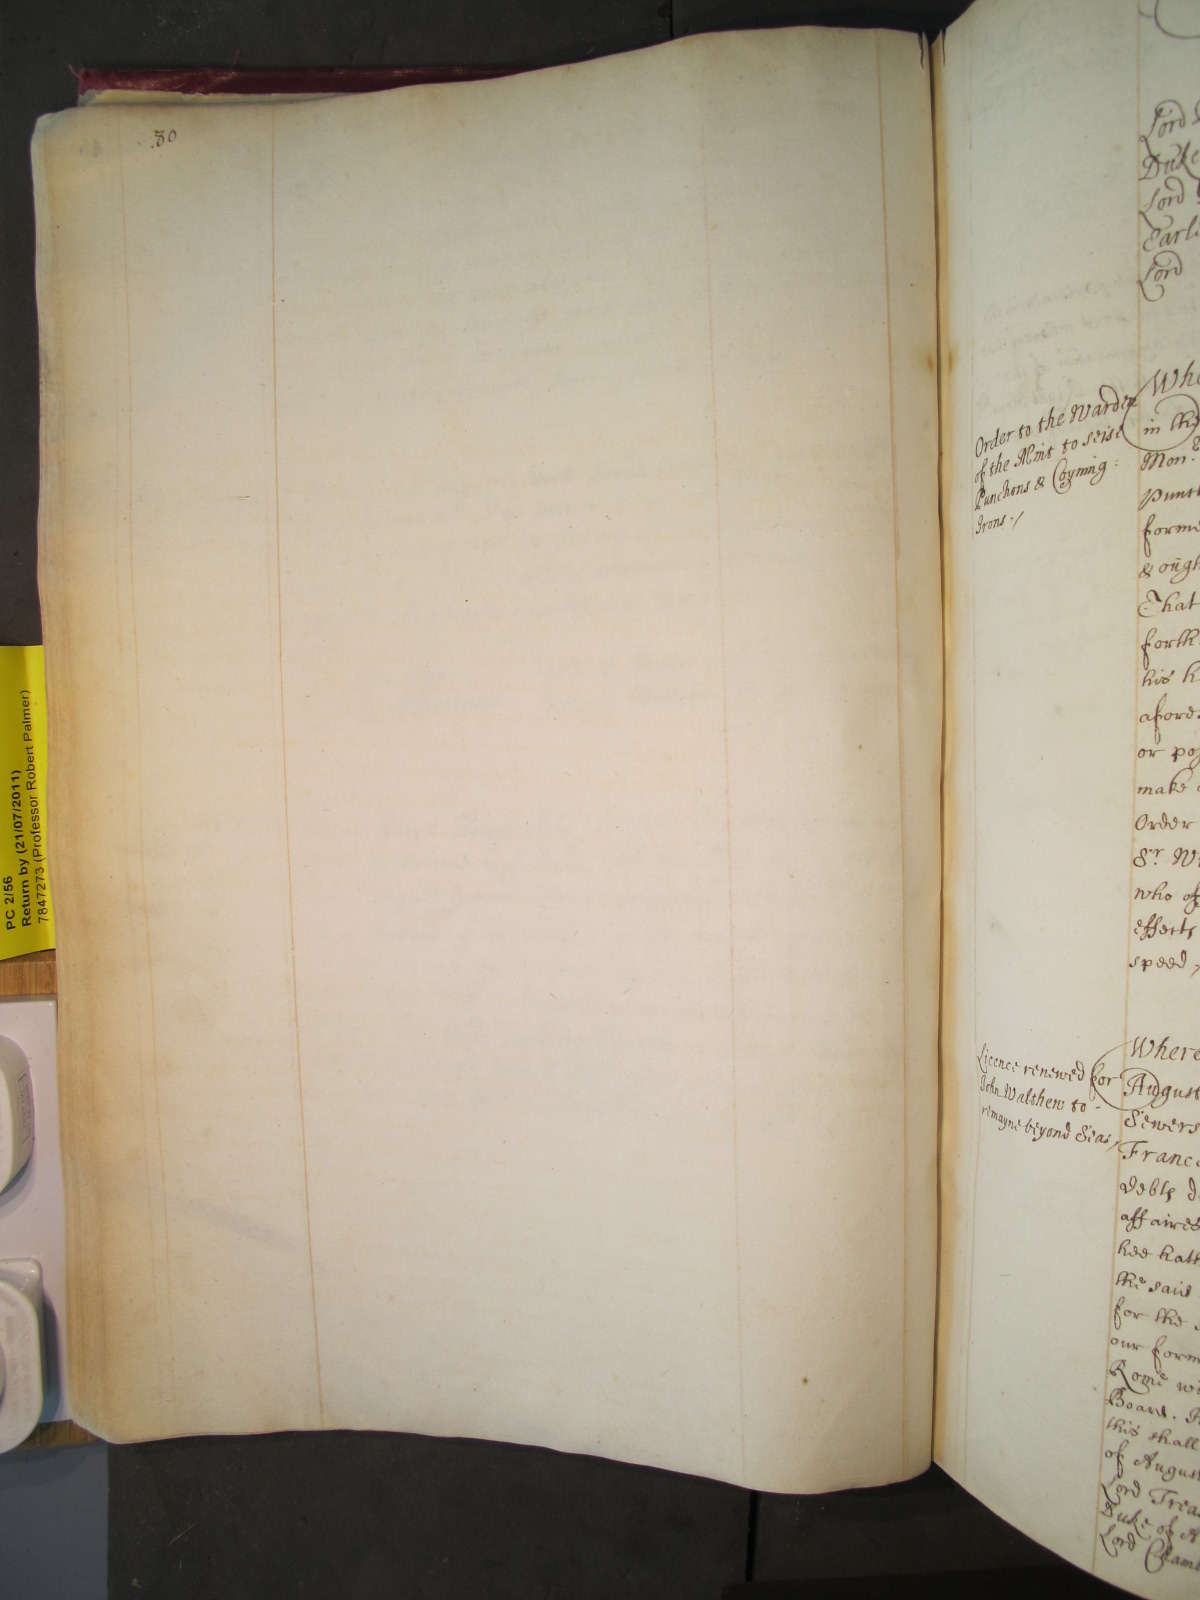 80
PC 2/56
Return by (21/07/2011)
7847273 (Professor Robert Palmer)
Order to the Warden
of the Mint to seise
Punchons & Coyning
Irons ./
Licence renewed for
John Walthew to
remayne beyond Seas,
Lord
Duke
Lord
Earl
Lord
Whe
in the
Mon:
Punch
forme
& ough
That
forth
his
afores
or
make
Order
Sr. W
who of
effects
speed,
Where
August
Sewers
France
debts d
affaires
hee hath
the said
for the
our form
Rome wi
Board.
this shall
of August
Lord Trea
Duke of A
Lord Chamb